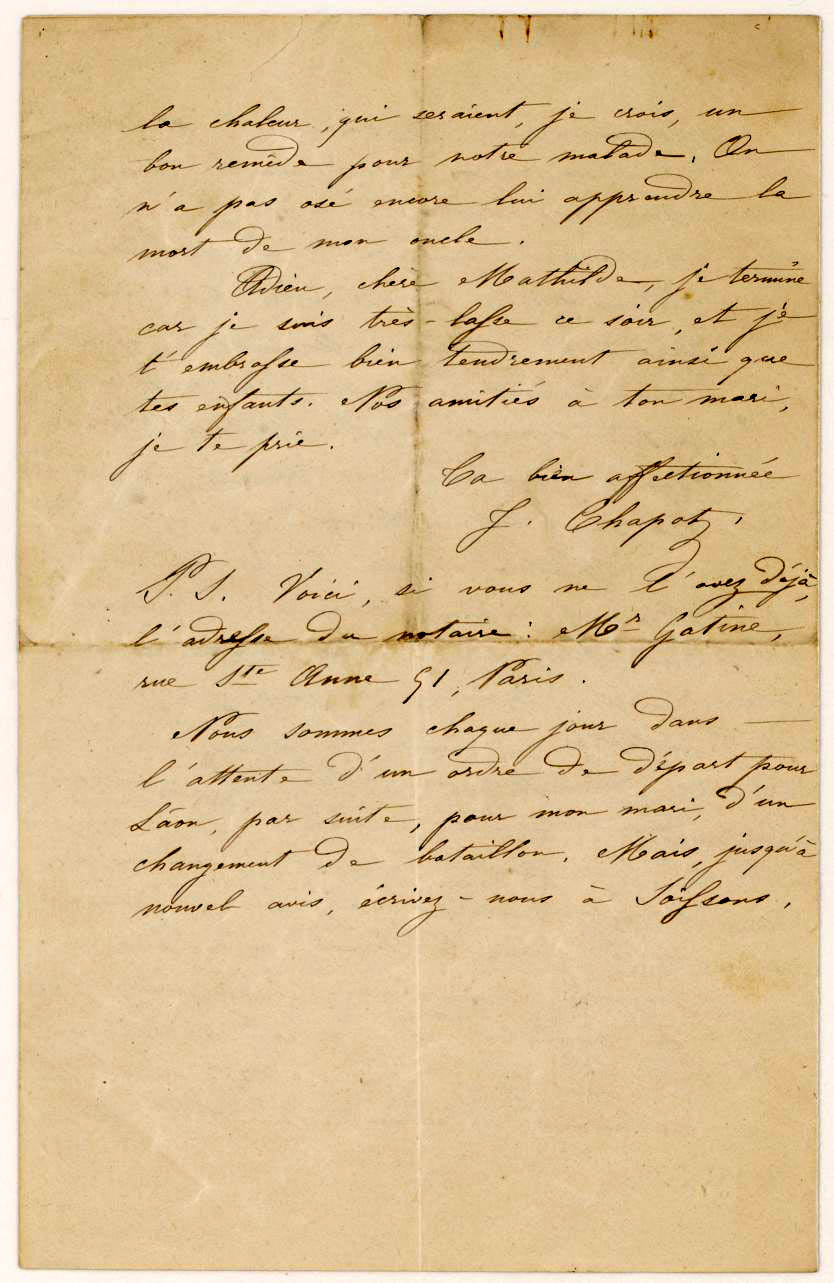 la chaleur, qui seraient, je crois, un
bon remède pour notre malade. On
n'a pas osé encore lui apprendre la
mort de mon oncle.
Adieu, chère Mathilde, je termine
car je suis très-lasse ce soir, et je
t'embrasse bien tendrement ainsi que
tes enfants. Nos amitiés à ton mari,
je te prie.
Ta bien affectionnée
J. Chapotz.
P. S. Voici, si vous ne l'avez déjà,
l'adresse du notaire : Mr Gatine,
rue Ste Anne 51, Paris.
Nous sommes chaque jour dans —
l'attente d'un ordre de départ pour
Läon, par suite, pour mon mari, d'un
changement de bataillon. Mais, jusqu'à
nouvel avis, écrivez-nous à Soissons.